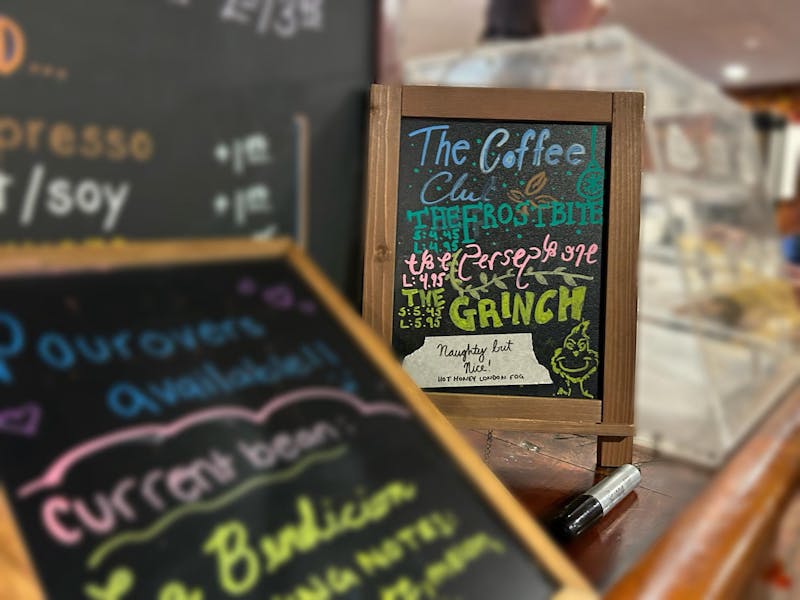 presso +1.00
/soy +1.00
The Coffee
Club
THE FROSTBITE
S: 4.45
L: 4.95
the Persephone
L: 4.95
THE GRINCH
S: 5.45
L: 5.95
Naughty but
Nice!
HOT HONEY LONDON FOG
Pourovers
available!!
Current bean:
Bendicion
NOTES: